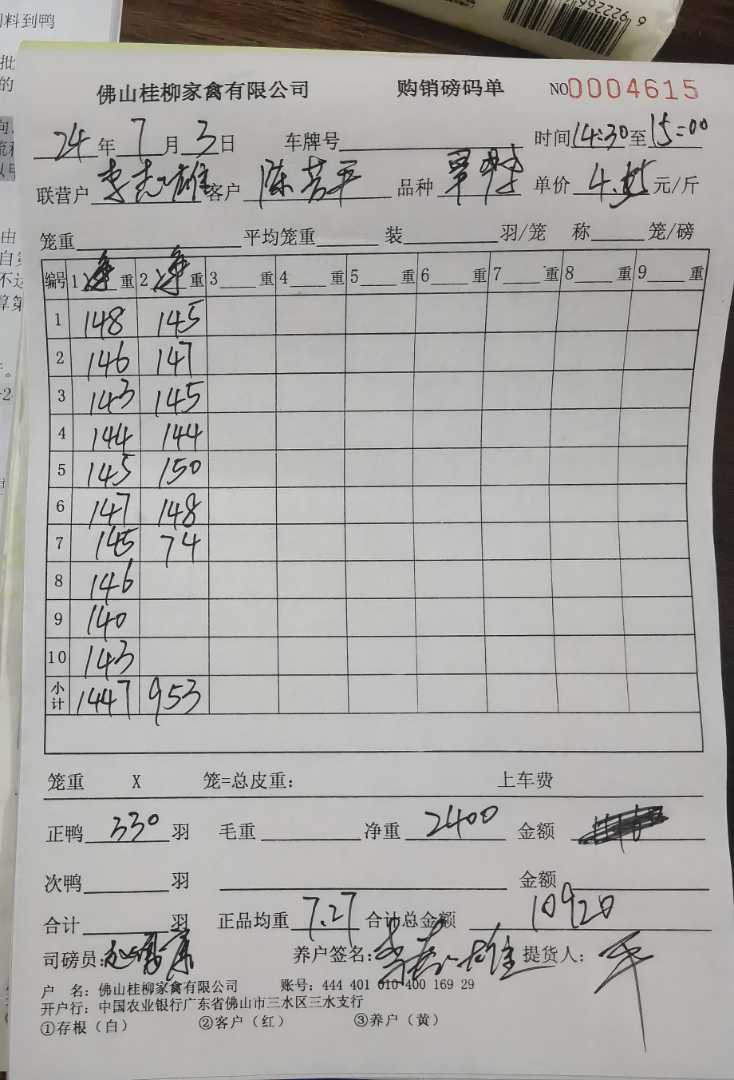 料到鸭
992226 9
佛山桂柳家禽有限公司 购销磅码单 NO0004615
24年7月3日 车牌号 时间14:30至15:00
联营户 李志雄 客户 陈芳平 品种 单价 4.55 元/斤
笼重 平均笼重 装 羽/笼 称 笼/磅
编号 1净重 2净重 3 重 4 重 5 重 6 重 7 重 8 重 9 重
1 148 145
2 146 147
3 143 145
4 144 144
5 145 150
6 147 148
7 145 74
8 146
9 140
10 143
小计 1447 953
笼重 X 笼=总皮重: 上车费
正鸭 330 羽 毛重 净重 2400 金额
次鸭 羽 金额
合计 羽 正品均重 7.27 合计总金额 10920
司磅员: 养户签名: 李志雄 提货人: 平
户 名: 佛山桂柳家禽有限公司 账号: 444 401 010 400 169 29
开户行: 中国农业银行广东省佛山市三水区三水支行
①存根(白) ②客户(红) ③养户(黄)